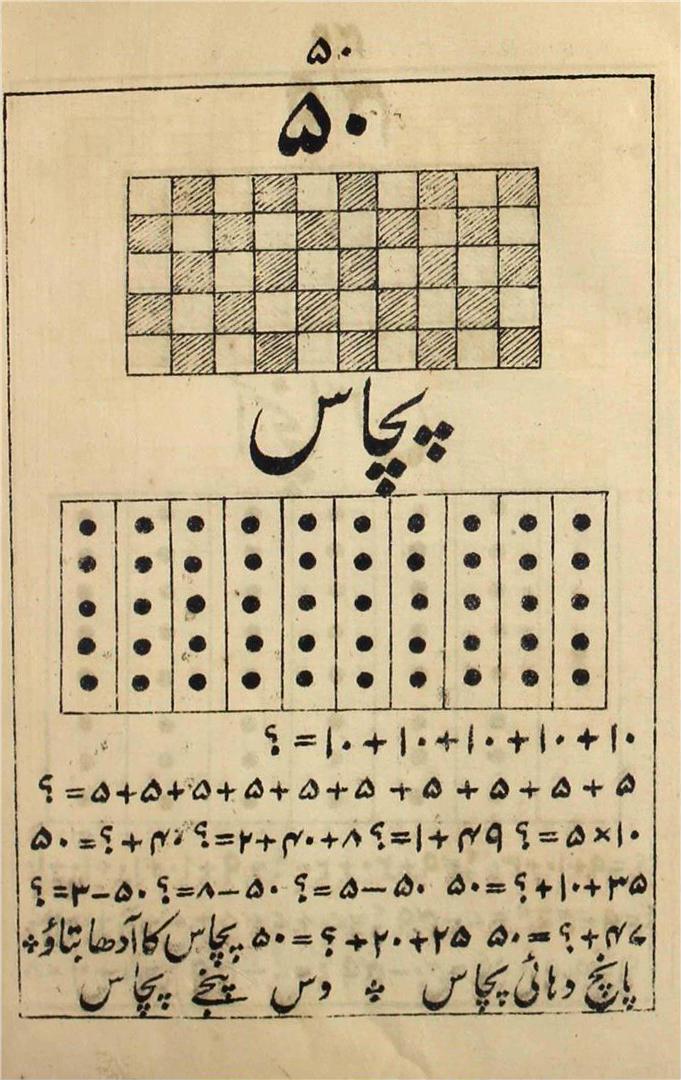 ۵۰
۵۰
پچاس
۱۰+۱۰+۱۰+۱۰+۱۰=؟
۵+۵+۵+۵+۵+۵+۵+۵+۵+۵=؟
۱۰×۵=؟ ۴۹+۱=؟ ۸+۴۰+۲=؟ ۴۰+؟=۵۰
۳۵+۱۰+؟=۵۰ ۵۰–۵=؟ ۵۰–۸=؟ ۵۰–۳=؟
۴۷+؟=۵۰ ۲۵+۲۰+؟=۵۰ پچاس کا آدھا بتاؤ ⁘
پانچ دہائی پچاس ⁘ دس پنجے پچاس